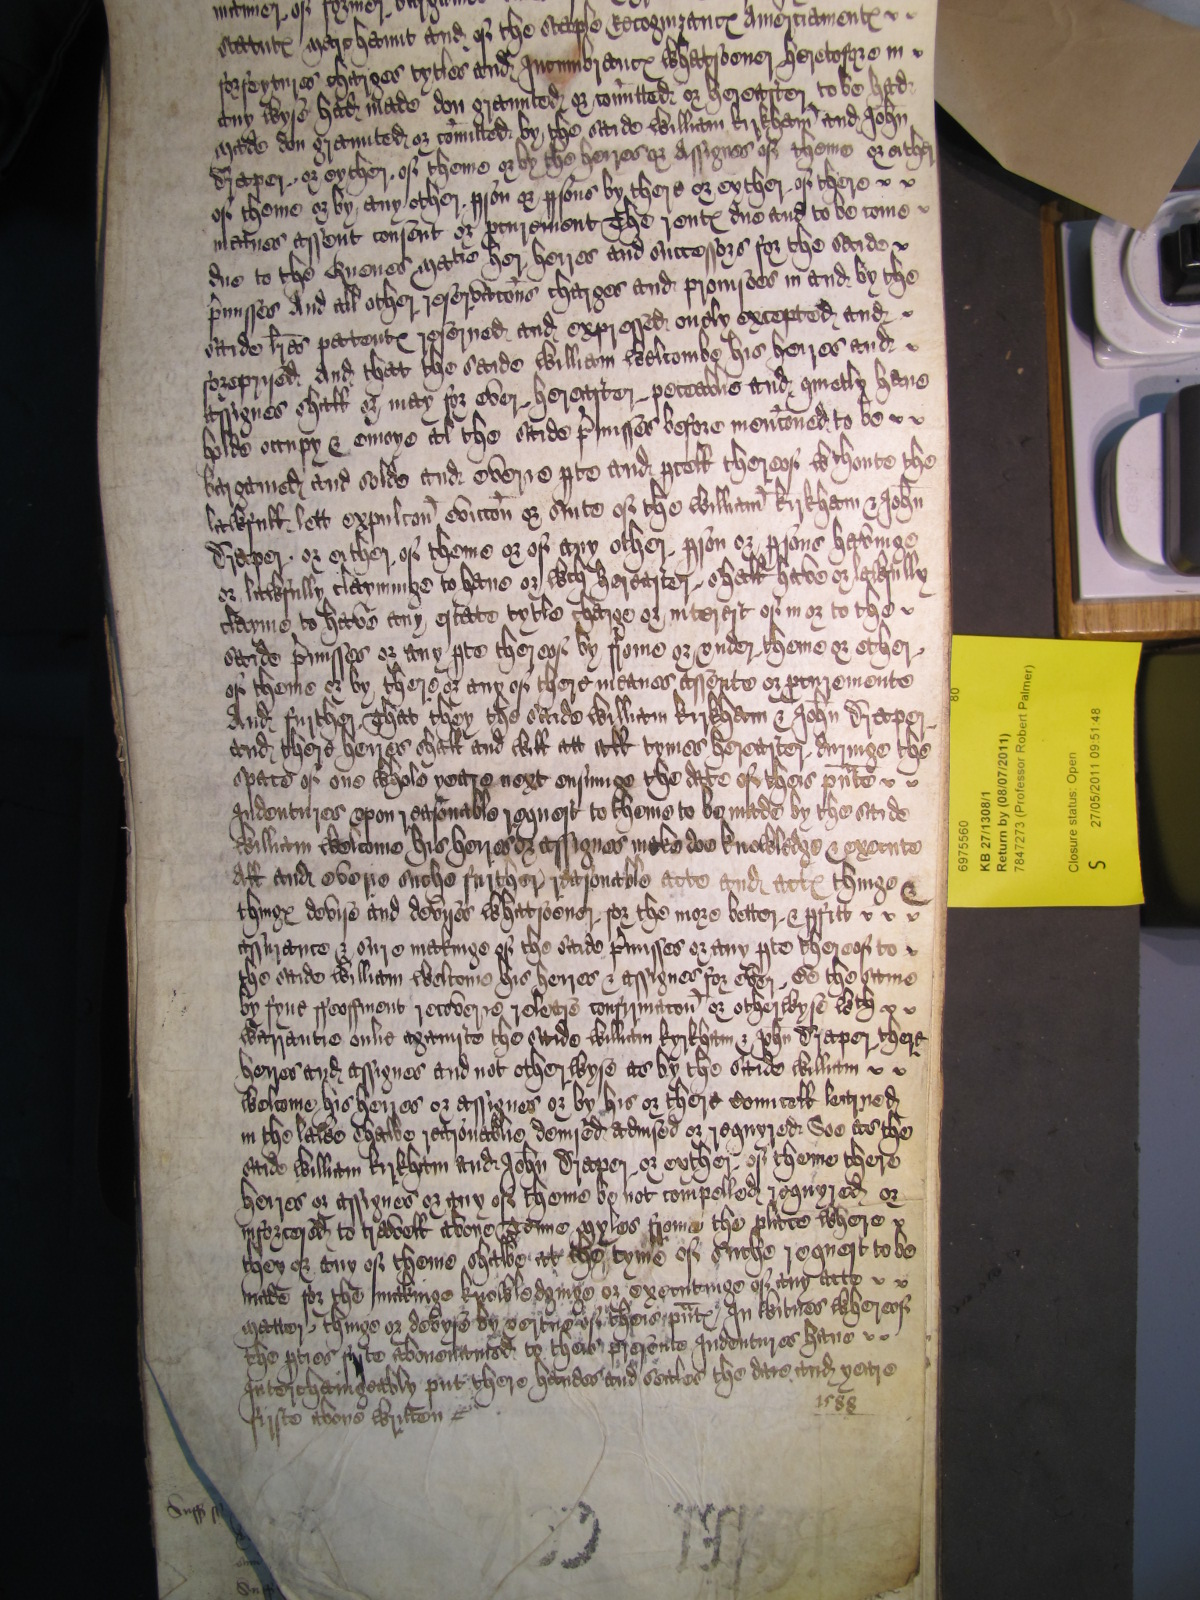 manner of former bargaines
statute marchaunt and of the staple Recognizancz Amerciamentz
forfeytures charges tytles and Incumbrancz whatsoever heretofore in
any wyse had made don graunted or comitted or hereafter to be had
made don graunted or comitted by the saide William Kirkham and John
Draper or eyther of theme or by the heires or Assignes of theme or either
of theme or by any other pson or psons by there or eyther of there
meanes assent consent or pcurement The rentz due and to be come
due to the Quenes matie her heires and successors for the saide
pmisses And all other reservacons charges and promises in and by the
saide lres pattentz reserved and expressed onely excepted and
foreprised And that the saide William Welcombe his heires and
assignes shall or may for ever hereafter peceable and quietly have
holde occupy & enioye al the saide pmisses before mencioned to be
bargained and solde and everie pte and pcell thereof wthoute the
lawfull lett expulcon eviccon or sute of the William Kirkham & John
Draper or either of theme or of any other pson or psons havinge
or lawfully clayminge to have or wch hereafter shall have or lawfully
clayme to have any estate tytle charge or interest of in or to the
saide pmisses or any pte thereof by frome or under theme or other
of theme or by there or any of there meanes assente or pcuremente
And further That they the saide William Kirkham & John Draper
and there heires shall and will att all tymes hereafter duringe the
space of one whole yeare next ensuinge the date of theis pnte
Indentures upon reasonable request to theme to be made by the saide
William Welcome his heires or assignes make doe knowledge & execute
All and everie suche further reasonable acte and actz thinge &
thingz devise and devises whatsoever for the more better & pfitt
assurance & sure makinge of the saide pmisses or any pte thereof to
the saide William Welcome his heires & assignes for ever Be the same
by fyne ffeoffment recoverie release confirmacon or otherwyse wth
warrantie onlie againste the saide William Kyrkham & John Draper there
heires and assignes and not otherwyse as by the saide William
Welcome his heires or assignes or by his or there Councell learned
in the lawe shalbe reasonablie devised advised or requyred Soe as the
saide William Kirkham and John Draper or eyther of theme there
heires or assignes or any of theme be not compelled requyred or
inforced to travell above Tenne myles frome the place where
they or any of theme shalbe at the tyme of suche request to be
made for the makinge knowledginge or executinge of any acte
matter thinge or devyse by vertue of theis pntz In witnes whereof
the pties firste abovenamed to theis presente Indentures have
Interchaingeably put there handes and seales the daie and yeare
firste above written
1588
6975560
80
KB 27/1308/1
Return by (08/07/2011)
7847273 (Professor Robert Palmer)
Closure status: Open
S 27/05/2011 09:51:48